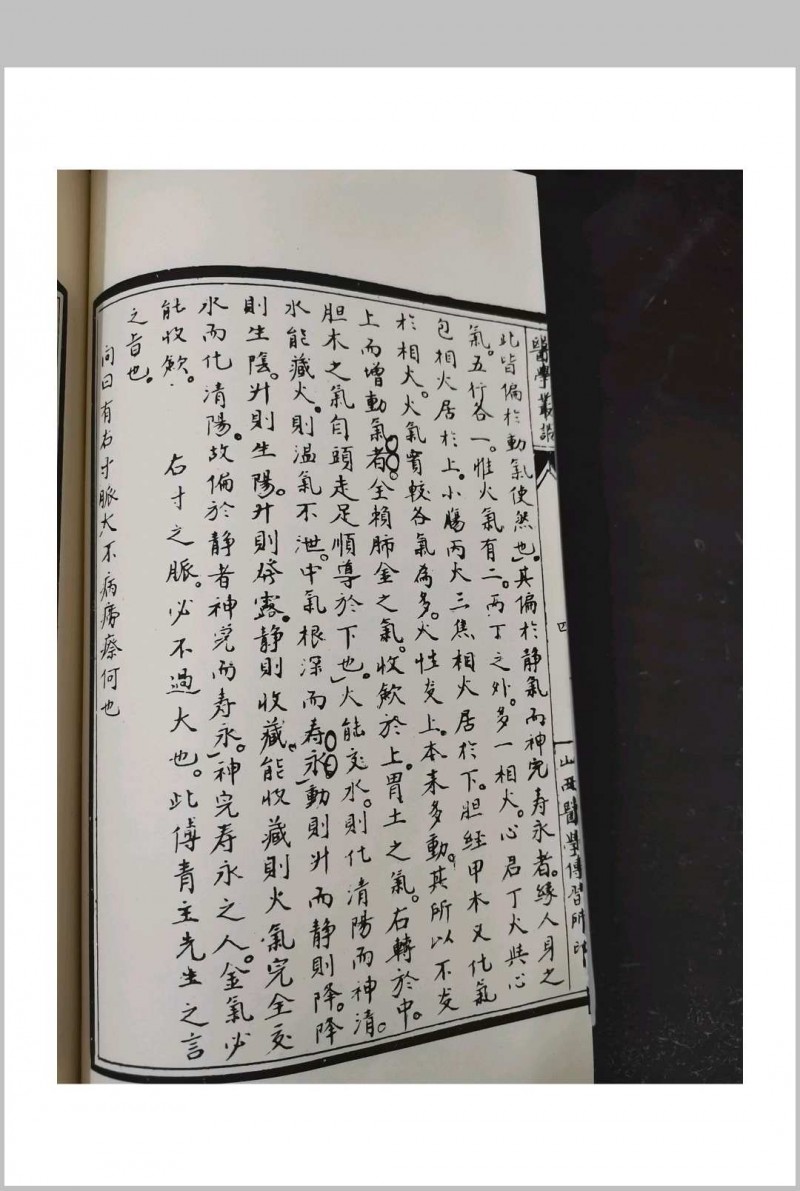 醫學叢
四
山西醫學傳習所印
此皆偏於動氣使然也」其偏於静氣而神完寿永者。緣人身之
氣。五行各一。惟火氣有二。丙丁之外。多一相火。心君丁火與心
包相火居於上。小腸丙火三焦相火居於下。胆經甲木又化氣
於相火。火氣實較各氣為多。火性炎上。本来多動。其所以不炎
上而增動氣者。全賴肺金之氣。收歛於上。胃土之氣。右轉於中。
胆木之氣自頭走足順導於下也」火能交水。則化清陽而神清。
水能藏火。則温氣不泄。中氣根深而寿永」動則升而静則降。降
則生陰。升則生陽。升則發露。静則收藏。能收藏則火氣完全交
水而化清陽。故偏於静者神完而寿永」神完寿永之人。金氣必
能收歛。 右寸之脈。必不過大也。此傅青主先生之言
之旨也。
問曰有右寸脈大不病癆瘵何也